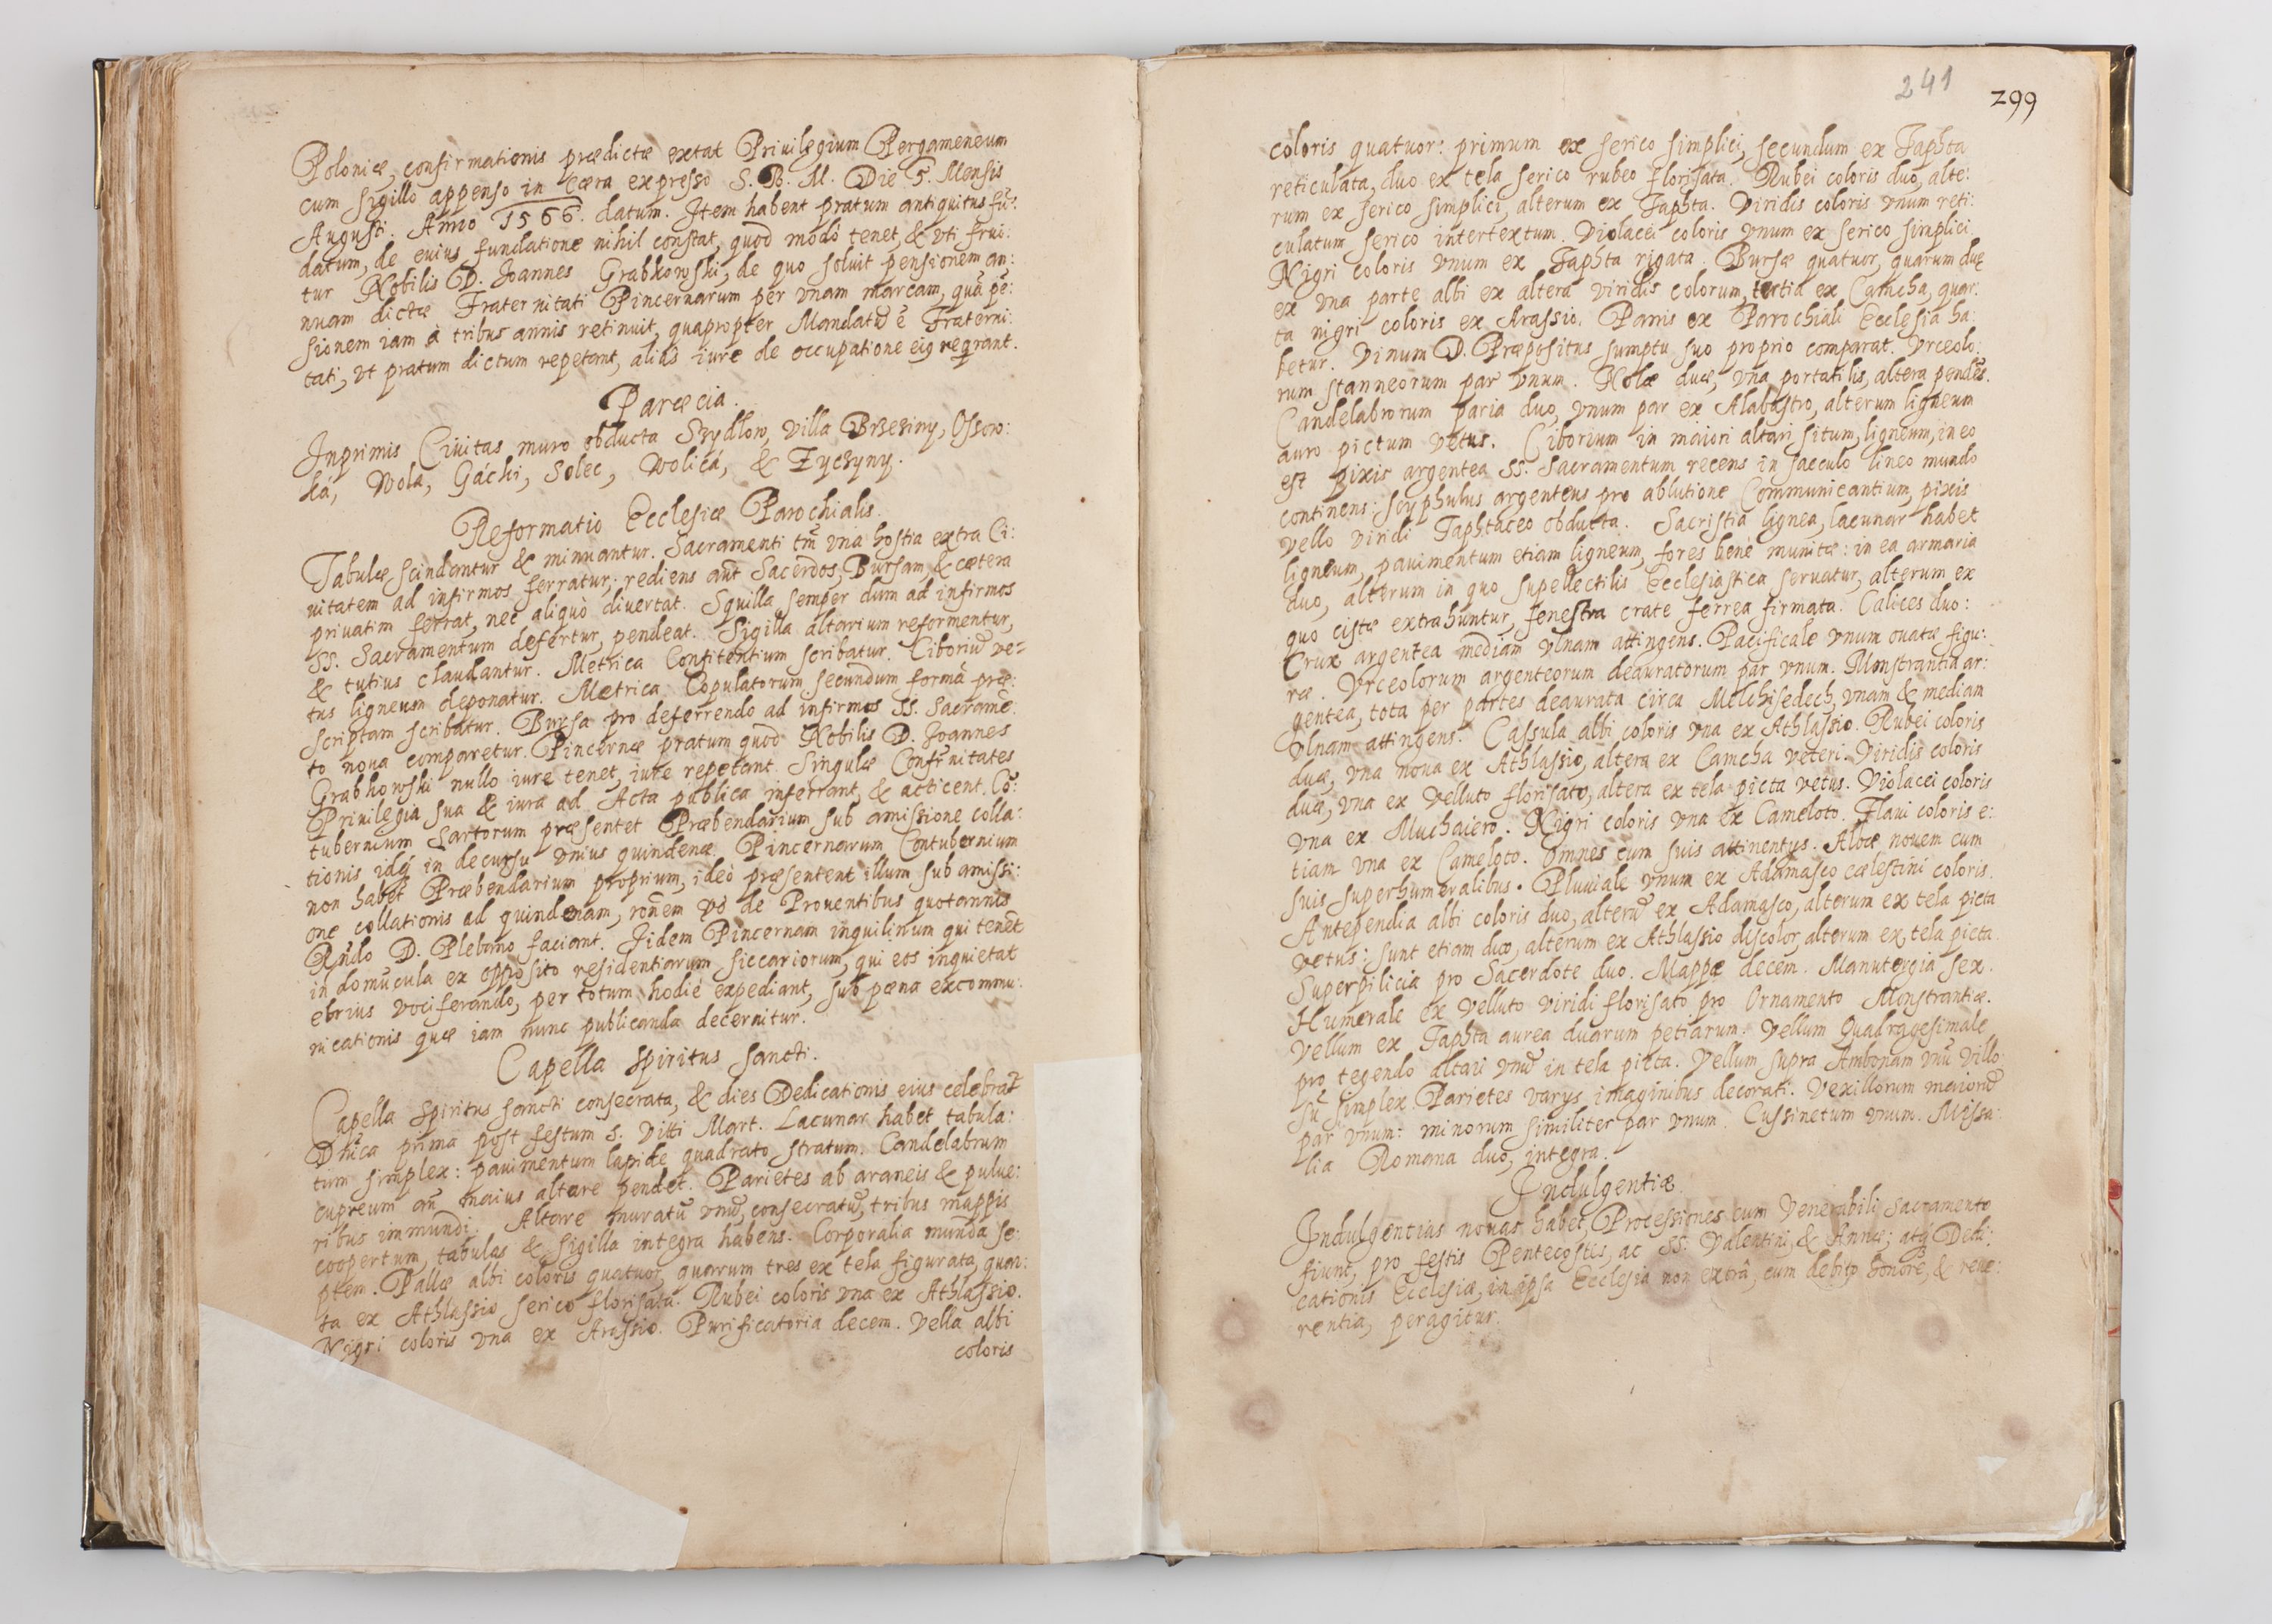 Poloniæ, confirmationis prædictæ extat Priuilegium Pergameneum
cum sigillo appenso in cæra expresso S. R. M. Die 5. Mensis
Augusti. Anno 1566. datum. Item habent pratum antiquitus fũ:
datum, de cuius fundatione nihil constat, quod modò tenet, & vti frui:
tur Nobilis D. Joannes Grabkowski, de quo soluit pensionem an:
nuam dictæ Fraternitati Pincernarum per vnam marcam, quã pẽ:
sionem iam à tribus annis retinuit, quapropter Mandatũ ẽ Fraterni:
tati, vt pratum dictum repetant, aliàs iure de occupatione
Parœcia.
Inprimis Ciuitas muro obducta Szydlow, villa Brzeziny, Ossow:
ká, Wola, Gácki, Solec, Wolicá, & Zyczyny.
Reformatio Ecclesiæ Parochialis.
Tabulæ scindantur & minuantur. Sacramenti tm̃ vna hostia extra Ci:
uitatem ad infirmos ferratur; rediens aũt Sacerdos, Bursam, & cætera
priuatim ferrat, nec aliquò diuertat. Squilla semper dum ad infirmos
SS. Sacramentum defertur, pendeat. Sigilla altarium reformentur,
& tutius claudantur. Metrica Confitentium scribatur. Ciboriũ ve=
tus ligneum deponatur. Metrica Copulatorum secundum formã præ:
scriptam scribatur. Bursa pro deferrendo ad infirmos SS. Sacramẽ:
to noua comparetur. Pincernæ pratum quod Nobilis D. Joannes
Grabkowski nullo iure tenet, iure repetant. Singulæ Confr̃nitates
Priuilegia sua & iura ad Acta publica inferrant, & acticent. Cõ:
tubernium Sartorum præsentet Præbendarium sub amissione colla:
tionis idq́ in decursu vnius quindenæ. Pincernarum Contubernium
non habet Præbendarium proprium, ideò præsentent illum sub amissi:
one collationis ad quindenam, rõnem vò de Prouentibus quotannis
Rñdo D. Plebano faciant. Jidem Pincernam inquilinum qui tenet
in domuncula ex opposito residentiarum siccariorum, qui eos inquietat
ebrius vociferando, per totum hodiè expediant, sub pæna excommu:
nicationis quæ iam nunc publicanda decernitur.
Capella Spiritus Sancti.
Capella Spiritus Sancti consecrata, & dies Dedicationis eius celebrat̃
Dñica prima post festum S. Vitti Mart. Lacunar habet tabula:
tum simplex: pauimentum lapide quadrato stratum. Candelabrum
cupreum añ maius altare pendet. Parietes ab araneis & pulue:
ribus immundi. Altare muratũ vnũ, consecratũ, tribus mappis
coopertum, tabulas & sigilla integra habens. Corporalia munda se:
ptem. Pallæ albi coloris quatuor, quarum tres ex tela figurata, quar:
ta ex Athlassio serico florisata. Rubei coloris vna ex Athlassio.
Nigri coloris vna ex Arassio. Purificatoria decem. Vella albi
coloris
241
299
coloris quatuor: primum ex serico simplici, secundum ex Taphta
reticulata, duo ex tela serico rubeo florisata. Rubei coloris duo, alte:
rum ex serico simplici, alterum ex Taphta. Viridis coloris vnum reti:
culatum serico intertextum. Violacei coloris vnum ex serico simplici.
Nigri coloris vnum ex Taphta rigata. Bursæ quatuor, quarum duę
ex vna parte albi ex altera viridis colorum, tertia ex Camcha, quar:
ta nigri coloris ex Arassio. Panis ex Parochiali Ecclesia ha:
betur. Vinum D. Præpositus sumptu suo proprio comparat. Vrceolo:
rum stanneorum par vnum. Nolæ duæ, vna portatilis, altera pendẽs.
Candelabrorum paria duo, vnum par ex Alabastro, alterum ligneum
auro pictum vetus. Ciborium in maiori altari situm, ligneum, in eo
est pixis argentea SS. Sacramentum recens in sacculo lineo mundo
continens: scyphulus argenteus pro ablutione Communicantium, pixis
vello viridi Taphtaceo obducta. Sacristia lignea, lacunar habet
ligneum, pauimentum etiam ligneum, fores benè munitæ: in ea armaria
duo, alterum in quo supellectilis Ecclesiastica seruatur, alterum ex
quo cistæ extrahuntur, fenestra crate ferrea firmata. Calices duo:
Crux argentea mediam vlnam attingens. Pacificale vnum ouatæ figu:
ræ. Vrceolorum argenteorum deauratorum par vnum. Monstrantia ar:
gentea, tota per partes deaurata circa Melchisedech, vnam & mediam
vlnam attingens. Cassula albi coloris vna ex Athlassio. Rubei coloris
duæ, vna noua ex Athlassio, altera ex Camcha veteri. Viridis coloris
duæ, vna ex Velluto florisato, altera ex tela picta vetus. Violacei coloris
vna ex Muchaiero. Nigri coloris vna ex Cameloto. Flaui coloris e:
tiam vna ex Cameloto. Omnes cum suis attinentys. Albæ nouem cum
suis superhumeralibus. Pluuiale vnum ex Adamasco cælestini coloris.
Antependia albi coloris duo, alterũ ex Adamasco, alterum ex tela picta
vetus: sunt etiam duo, alterum ex Athlassio discolor, alterum ex tela picta.
Superpilicia pro Sacerdote duo. Mappæ decem. Manutergia sex.
Humerale ex Velluto viridi florisato pro Ornamento Monstrantiæ.
Vellum ex Taphta aurea duarum petiarum. Vellum Quadragesimale
pro tegendo altari vnũ in tela picta. Vellum supra Ambonam vnũ villo:
sũ simplex. Parietes varys imaginibus decorati. Vexillorum maiorũ
par vnum: minorum similiter par vnum. Cussinetum vnum. Missa:
lia Romana duo, integra.
Indulgentiæ.
Indulgentias nouas habet, Processiones cum Venerabili Sacramento
fiunt, pro festis Pentecostes, ac SS. Valentini, & Annæ; atq́ Dedi:
cationis Ecclesiæ, in ipsa Ecclesia non extrà, cum debito honore, & reue:
rentia, peragitur.